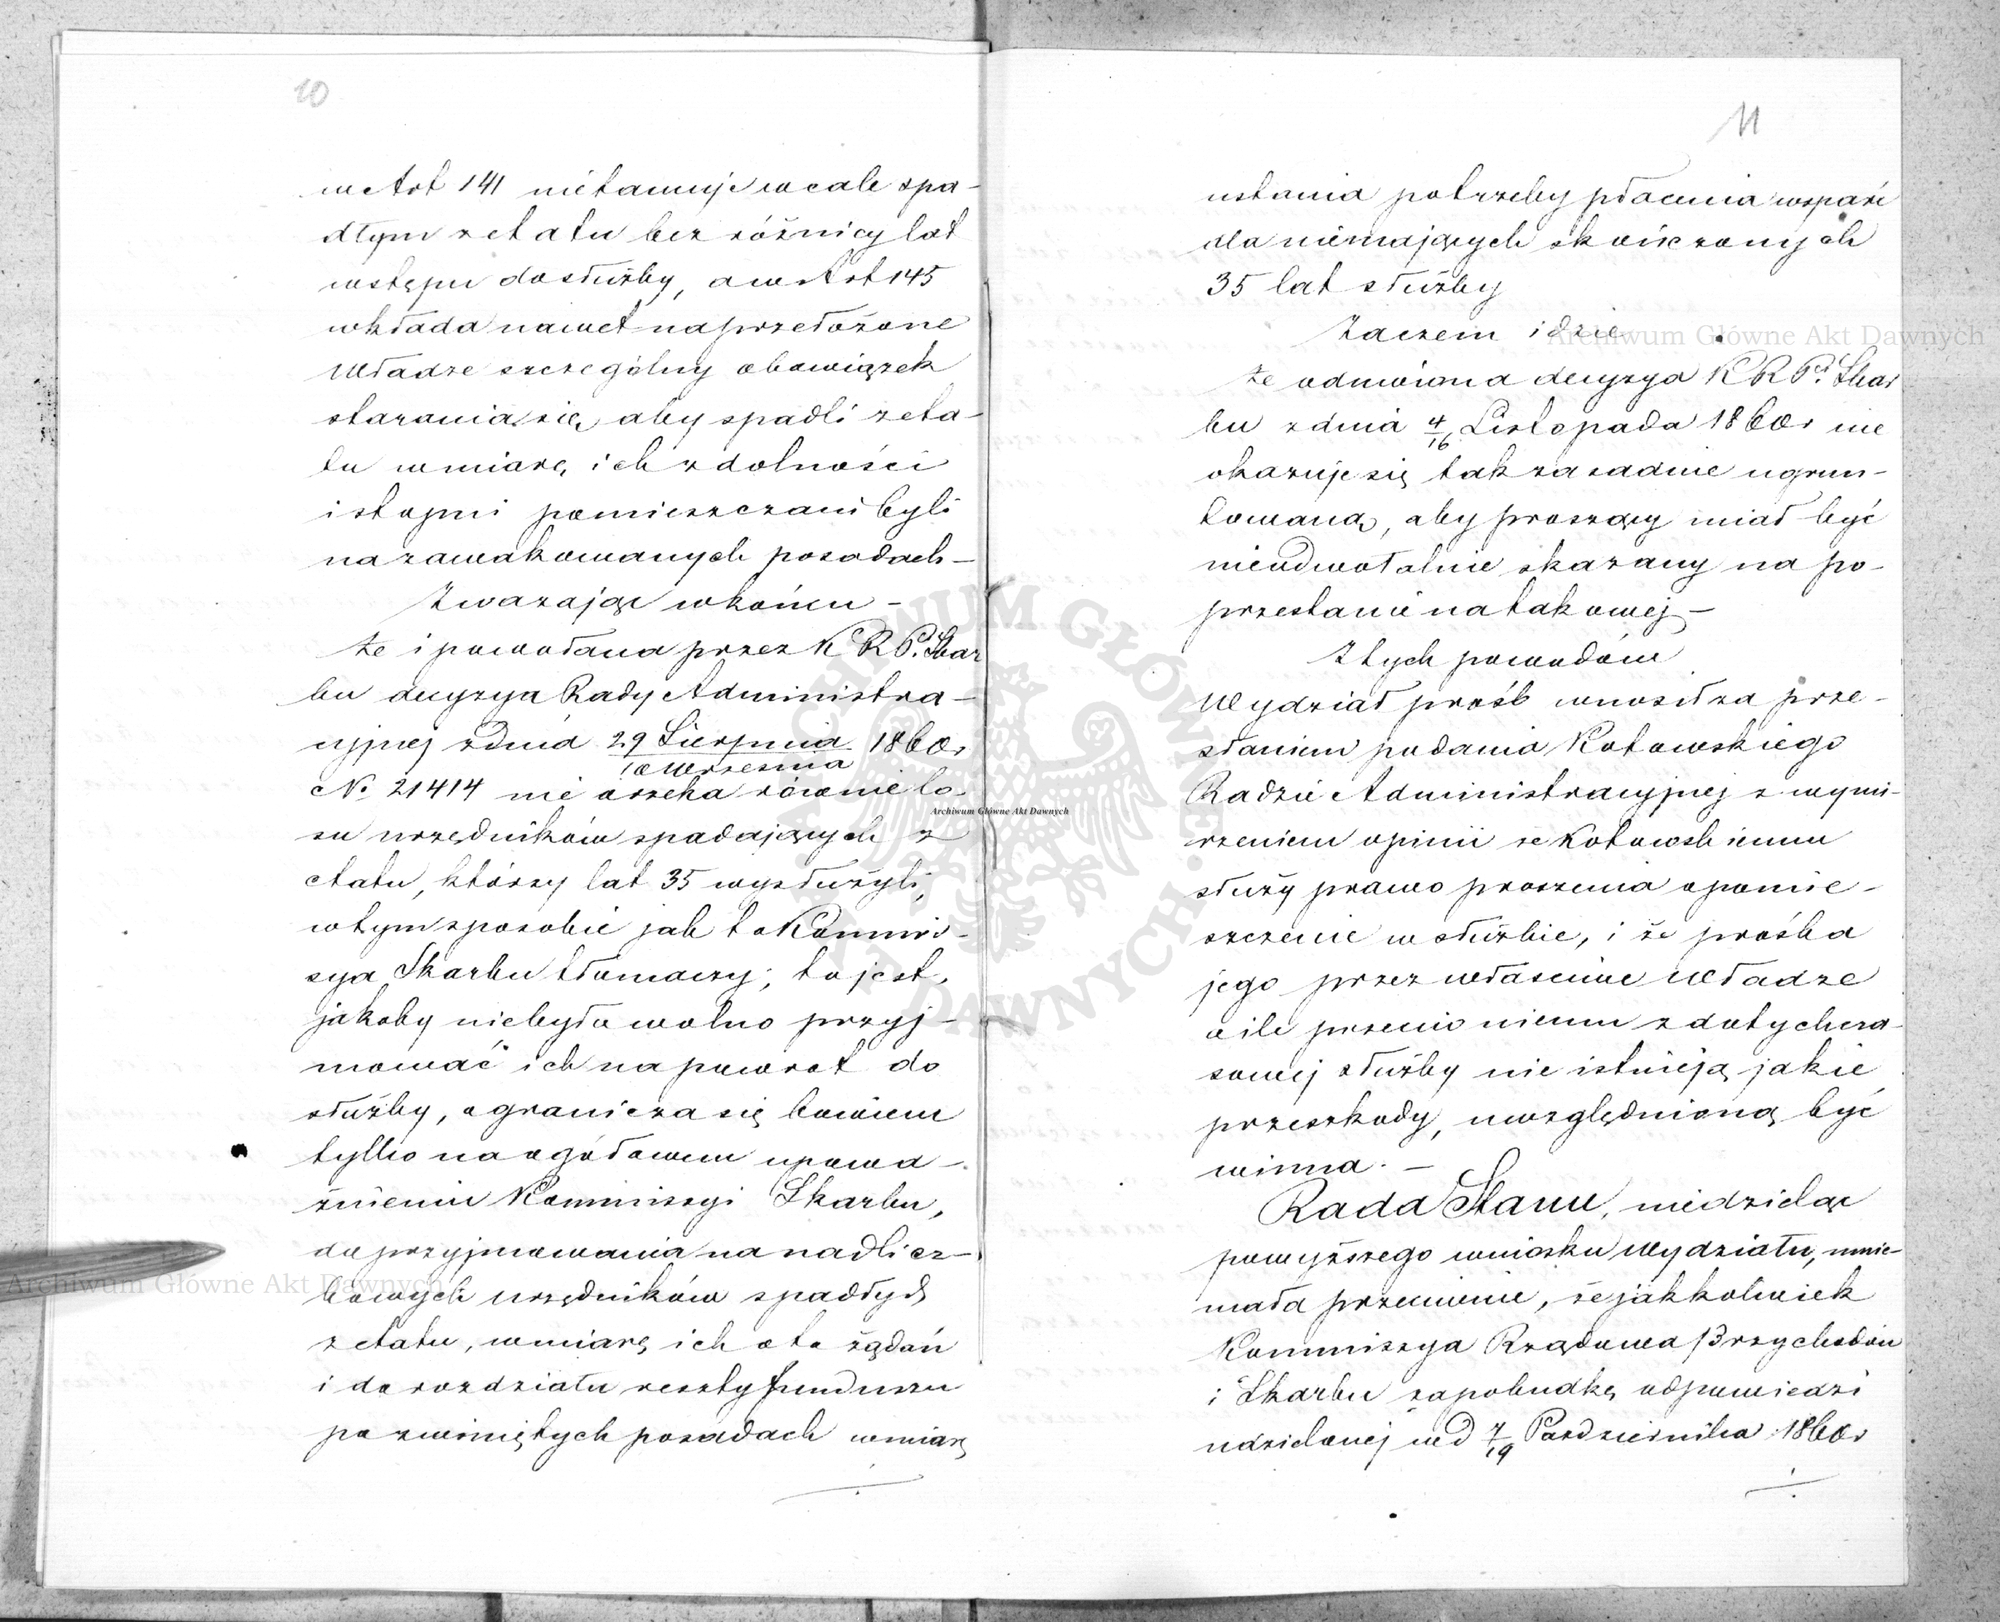 10
w Art 141 nietamuje wcale spa-
dłym z etatu bez różnicy lat
wstępu do służby, a w Art 145
wkłada nawet na przełożone
Władze szczególny obowiązek
starania się, aby spadli z eta-
tu w miarę ich zdolności
i stopni pomieszczani byli
na zawakowanych posadach –
Zważając w końcu –
że i powołana przez K R P. i Skar
bu decyzya Rady Administra-
cyjnej z dnia 29 Sierpnia 1860r
10 Września
No 21414 nie orzeka równie lo-
su urzędników spadających z
etatu, którzy lat 35 wysłużyli,
w tym sposobie jak to Kommis-
sya Skarbu tłomaczy, to jest,
jakoby niebyło wolno przyj-
mować ich na powrót do
służby, ogranicza się bowiem
tylko na ogółowem upowa-
żnieniu Kommissyi Skarbu,
do przyjmowania na nadlicz-
bowych urzędników spadłych
z etatu, w miarę ich o to żądań
i do rozdziału reszty funduszu
po zwiniętych posadach w miarę
11
ustania potrzeby płacenia wsparć
dla niemających skończonych
35 lat służby
Zaczem idzie
że odmówna decyzya K R P. i Skar
bu z dnia 4/16 Listopada 1860r nie
okazuje się tak zasadnie ugrun-
towaną, aby proszący miał być
nieodwołalnie skazany na po-
przestanie na takowej –
Z tych powodów
Wydział próśb wnosił za prze-
słaniem podania Kotowskiego
Radzie Administracyjnej z wymi-
rzeniem opinii że Kotowskiemu
służy prawo proszenia o pomie-
szczenie w służbie, i że prośba
jego przez właściwe Władze
o ile przeciw niemu z dotychcza-
sowej służby nie istnieją jakie
przeszkody, uwzględnioną być
winna. –
Rada Stanu, niedzieląc
powyższego wniosku Wydziału, mnie-
mała przeciwnie, że jakkolwiek
Kommissya Rządowa Przychodów
i Skarbu za pobudkę odpowiedzi
udzielonej w d 7/19 Października 1860r
Archiwum Główne Akt Dawnych
Archiwum Główne Akt Dawnych
Archiwum Główne Akt Dawnych
ARCHIWUM GŁÓWNE AKT DAWNYCH